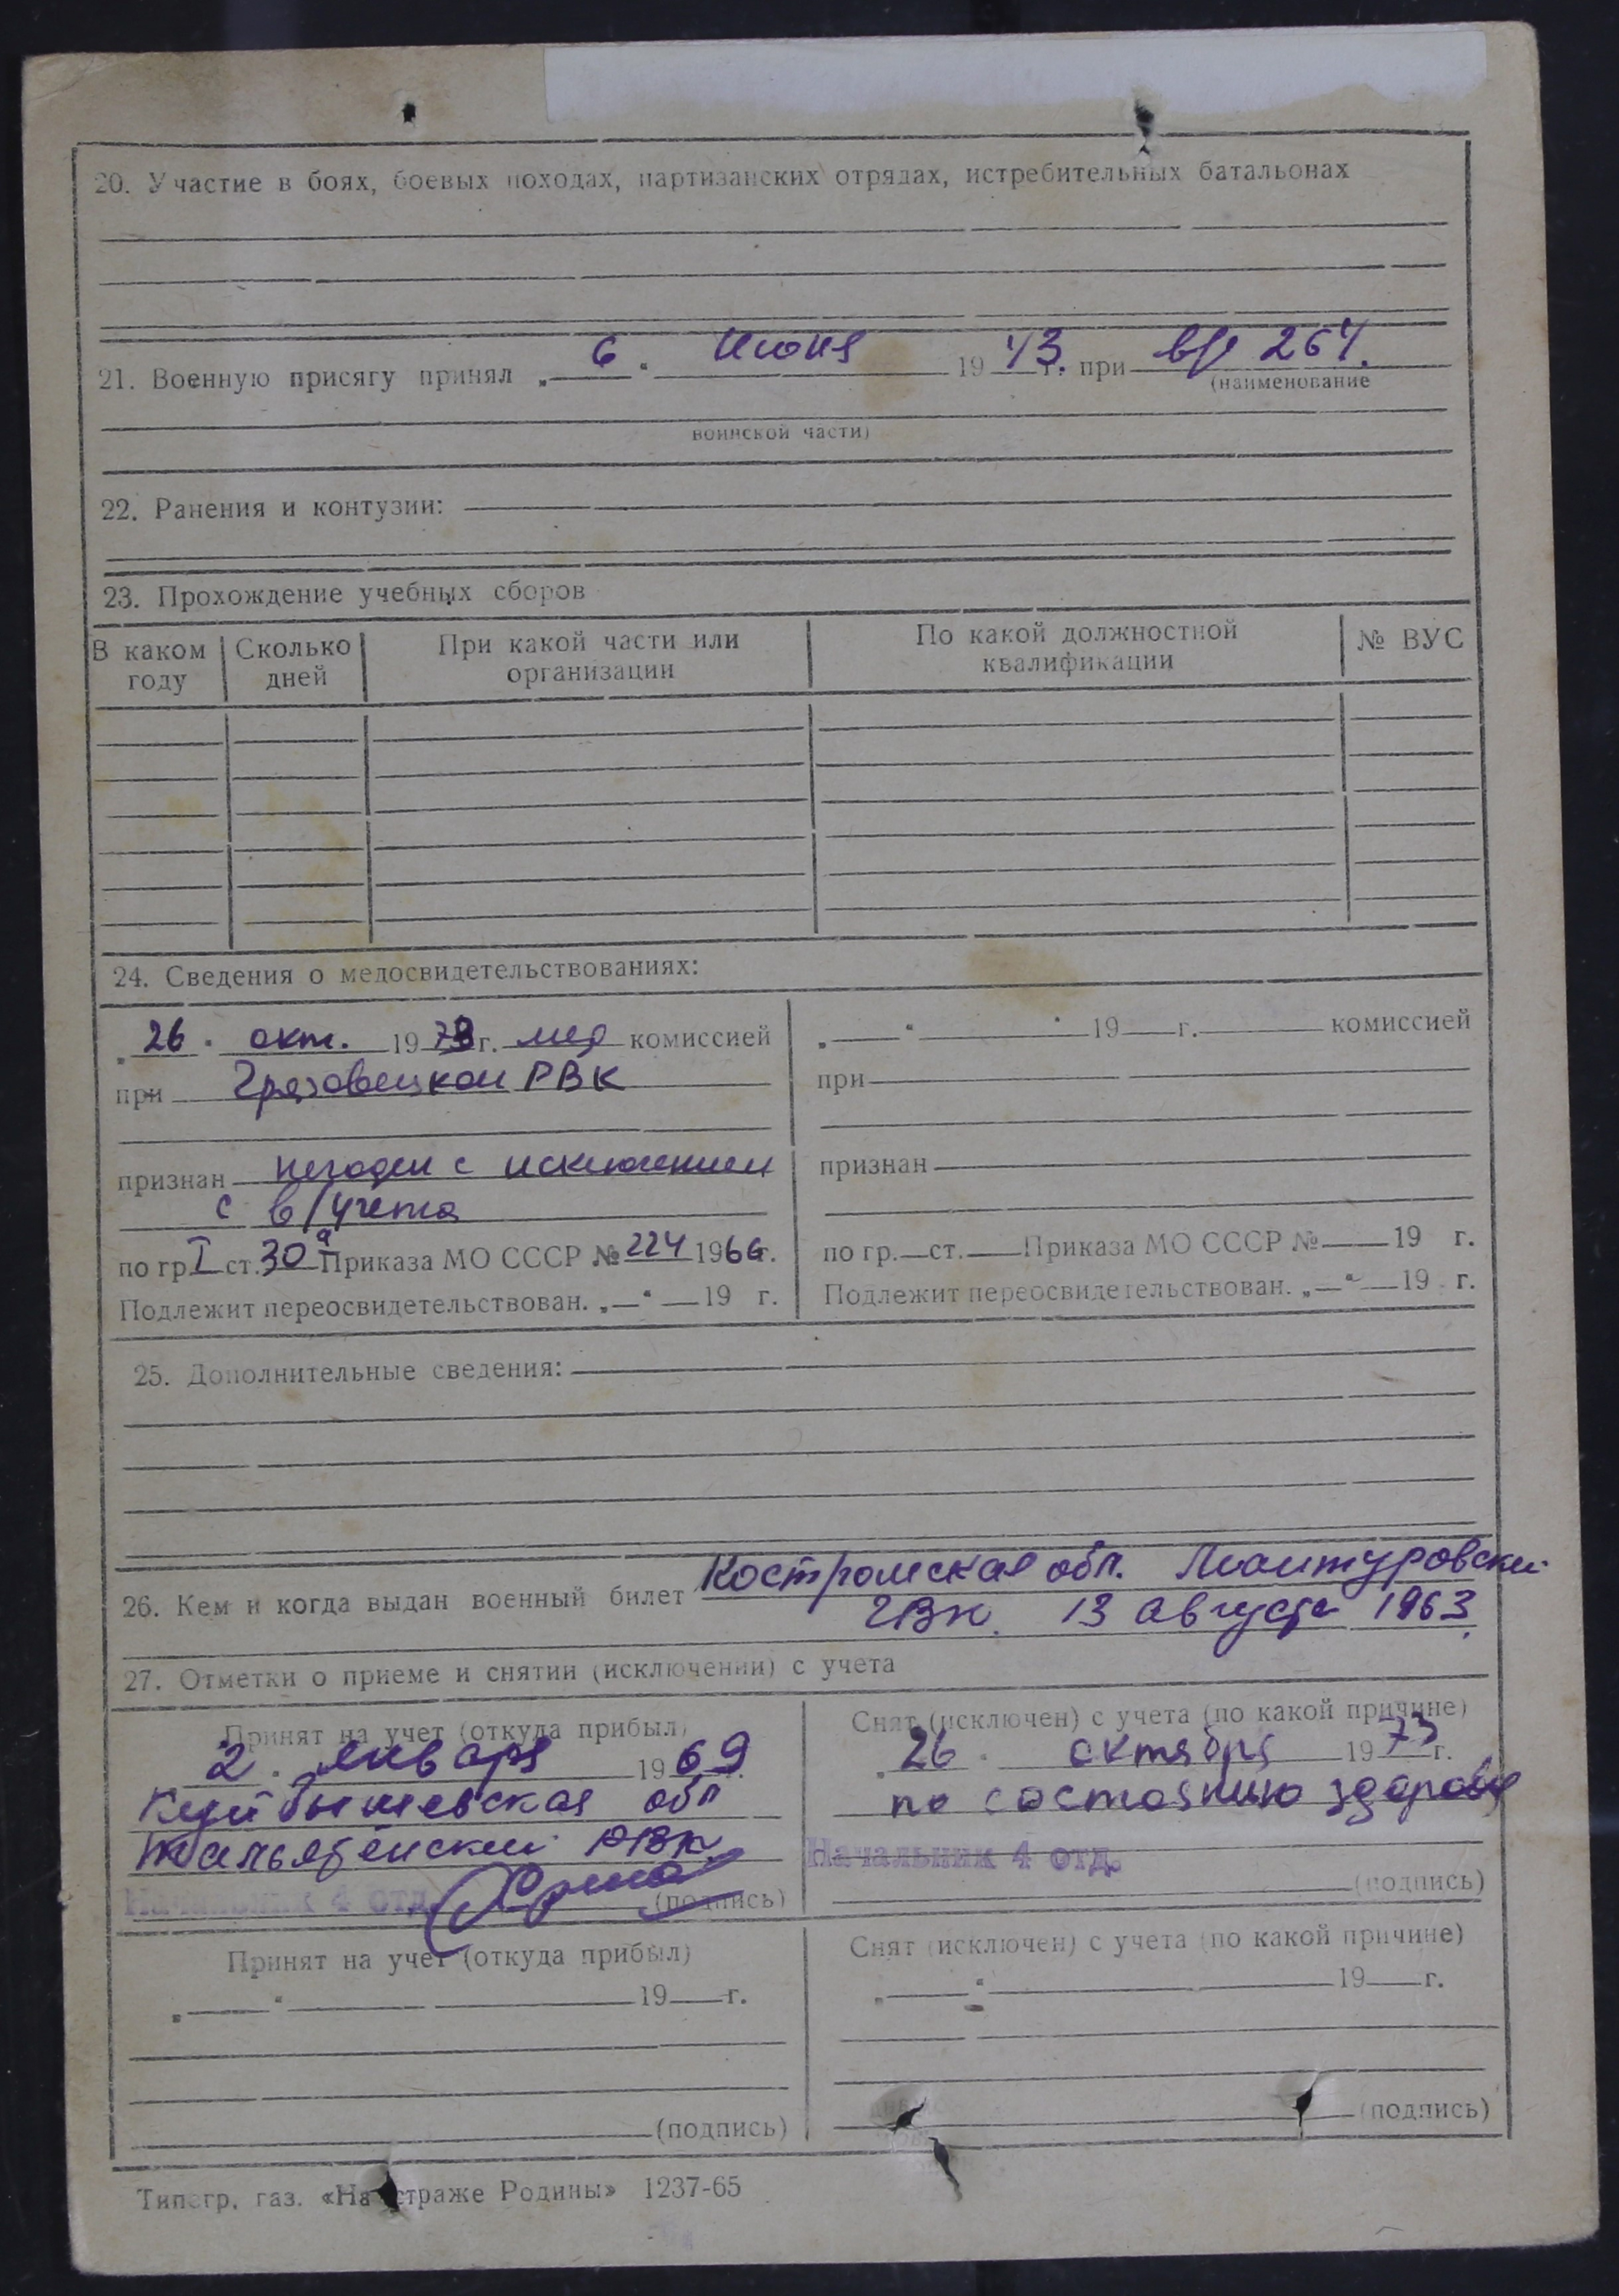 20. Участие в боях, боевых походах, партизанских отрядах, истребительных батальонах
21. Военную присягу принял „ 6 “ Июня 19 43 г. при в/ч 264.
(наименование
воинской части)
22. Ранения и контузии:
23. Прохождение учебных сборов
В каком году Сколько дней При какой части или организации По какой должностной квалификации № ВУС
24. Сведения о медосвидетельствованиях:
„ 26 “ окт. 19 73 г. мед комиссией
при Грязовецком РВК
признан негоден с исключением
с в/учета
по гр. I ст. 30а Приказа МО СССР № 224 1966г.
Подлежит переосвидетельствован. „ “ 19 г.
„ “ 19 г. комиссией
при
признан
по гр. ст. Приказа МО СССР № 19 г.
Подлежит переосвидетельствован. „ “ 19 г.
25. Дополнительные сведения:
26. Кем и когда выдан военный билет Костромская обл. Мантуровский
ГВК. 13 августа 1963.
27. Отметки о приеме и снятии (исключении) с учета
Принят на учет (откуда прибыл)
„ 2 “ января 19 69 г.
Куйбышевская обл
РВК
Начальник 4 отд.
(подпись)
Снят (исключен) с учета (по какой причине)
„ 26 “ октября 19 73 г.
по состоянию здоровья
Начальник 4 отд.
(подпись)
Принят на учет (откуда прибыл)
„ “ 19 г.
(подпись)
Снят (исключен) с учета (по какой причине)
„ “ 19 г.
(подпись)
Типогр. газ. «На страже Родины» 1237-65